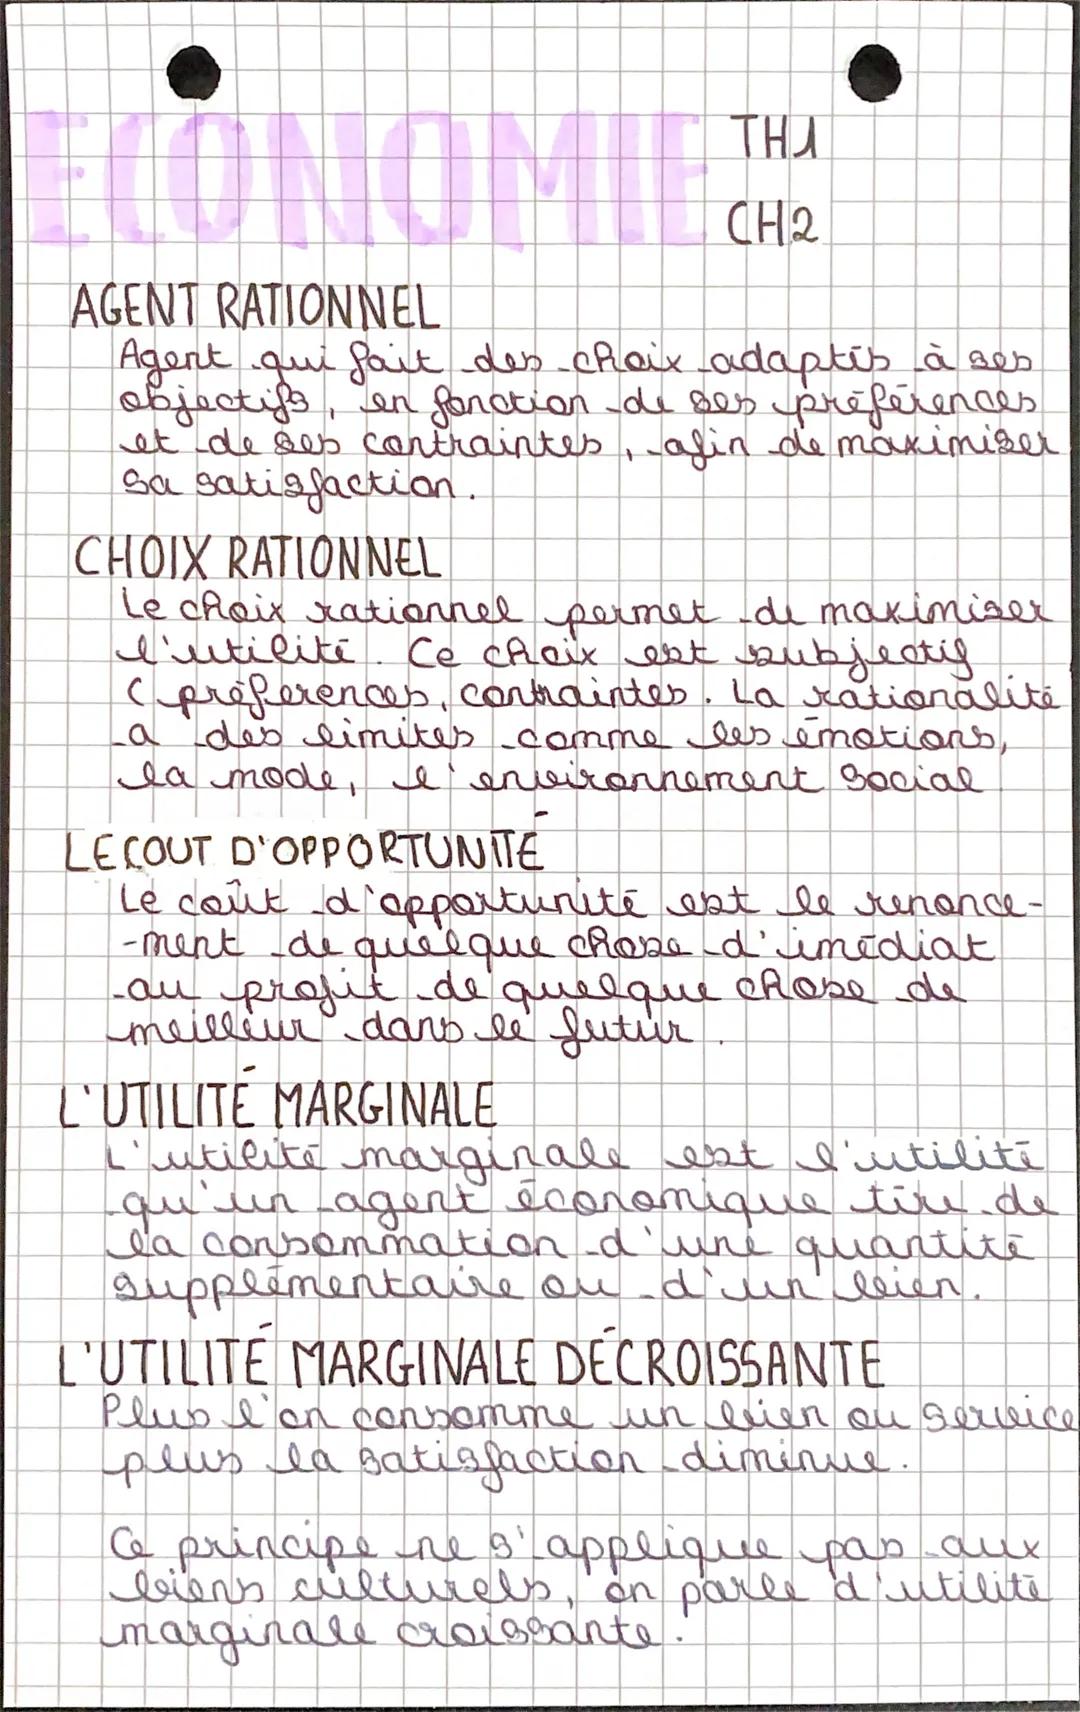 ECONOMIE
TH1
CH2
AGENT RATIONNEL
Agent qui fait des choix adaptés à ses
objectifs, en fonction de ses préférences
et de ses contraintes, afin de maximiser
sa satisfaction.
CHOIX RATIONNEL
Le choix rationnel permet de maximiser
l'utilité. Ce choix est subjectif
(préferences, contraintes. La rationalité
a des limites comme les émotions,
la mode, l'environnement social
LE COUT D'OPPORTUNITÉ
Le coût d'opportunité est le renonce-
-ment de quelque chose d'imédiat
au profit de quelque chose de
meilleur dans le futur.
L'UTILITÉ MARGINALE
L'utilité marginale est l'utilité
qu'un agent économique tire de
la consommation d'une quantité
supplémentaire ou d'un bien.
L'UTILITÉ MARGINALE DÉCROISSANTE
Plus l'on consomme un bien ou service
plus la satisfaction diminue.
Ce principe ne s'applique pas aux
biens culturels, on parle d'utilité
marginale croissante.